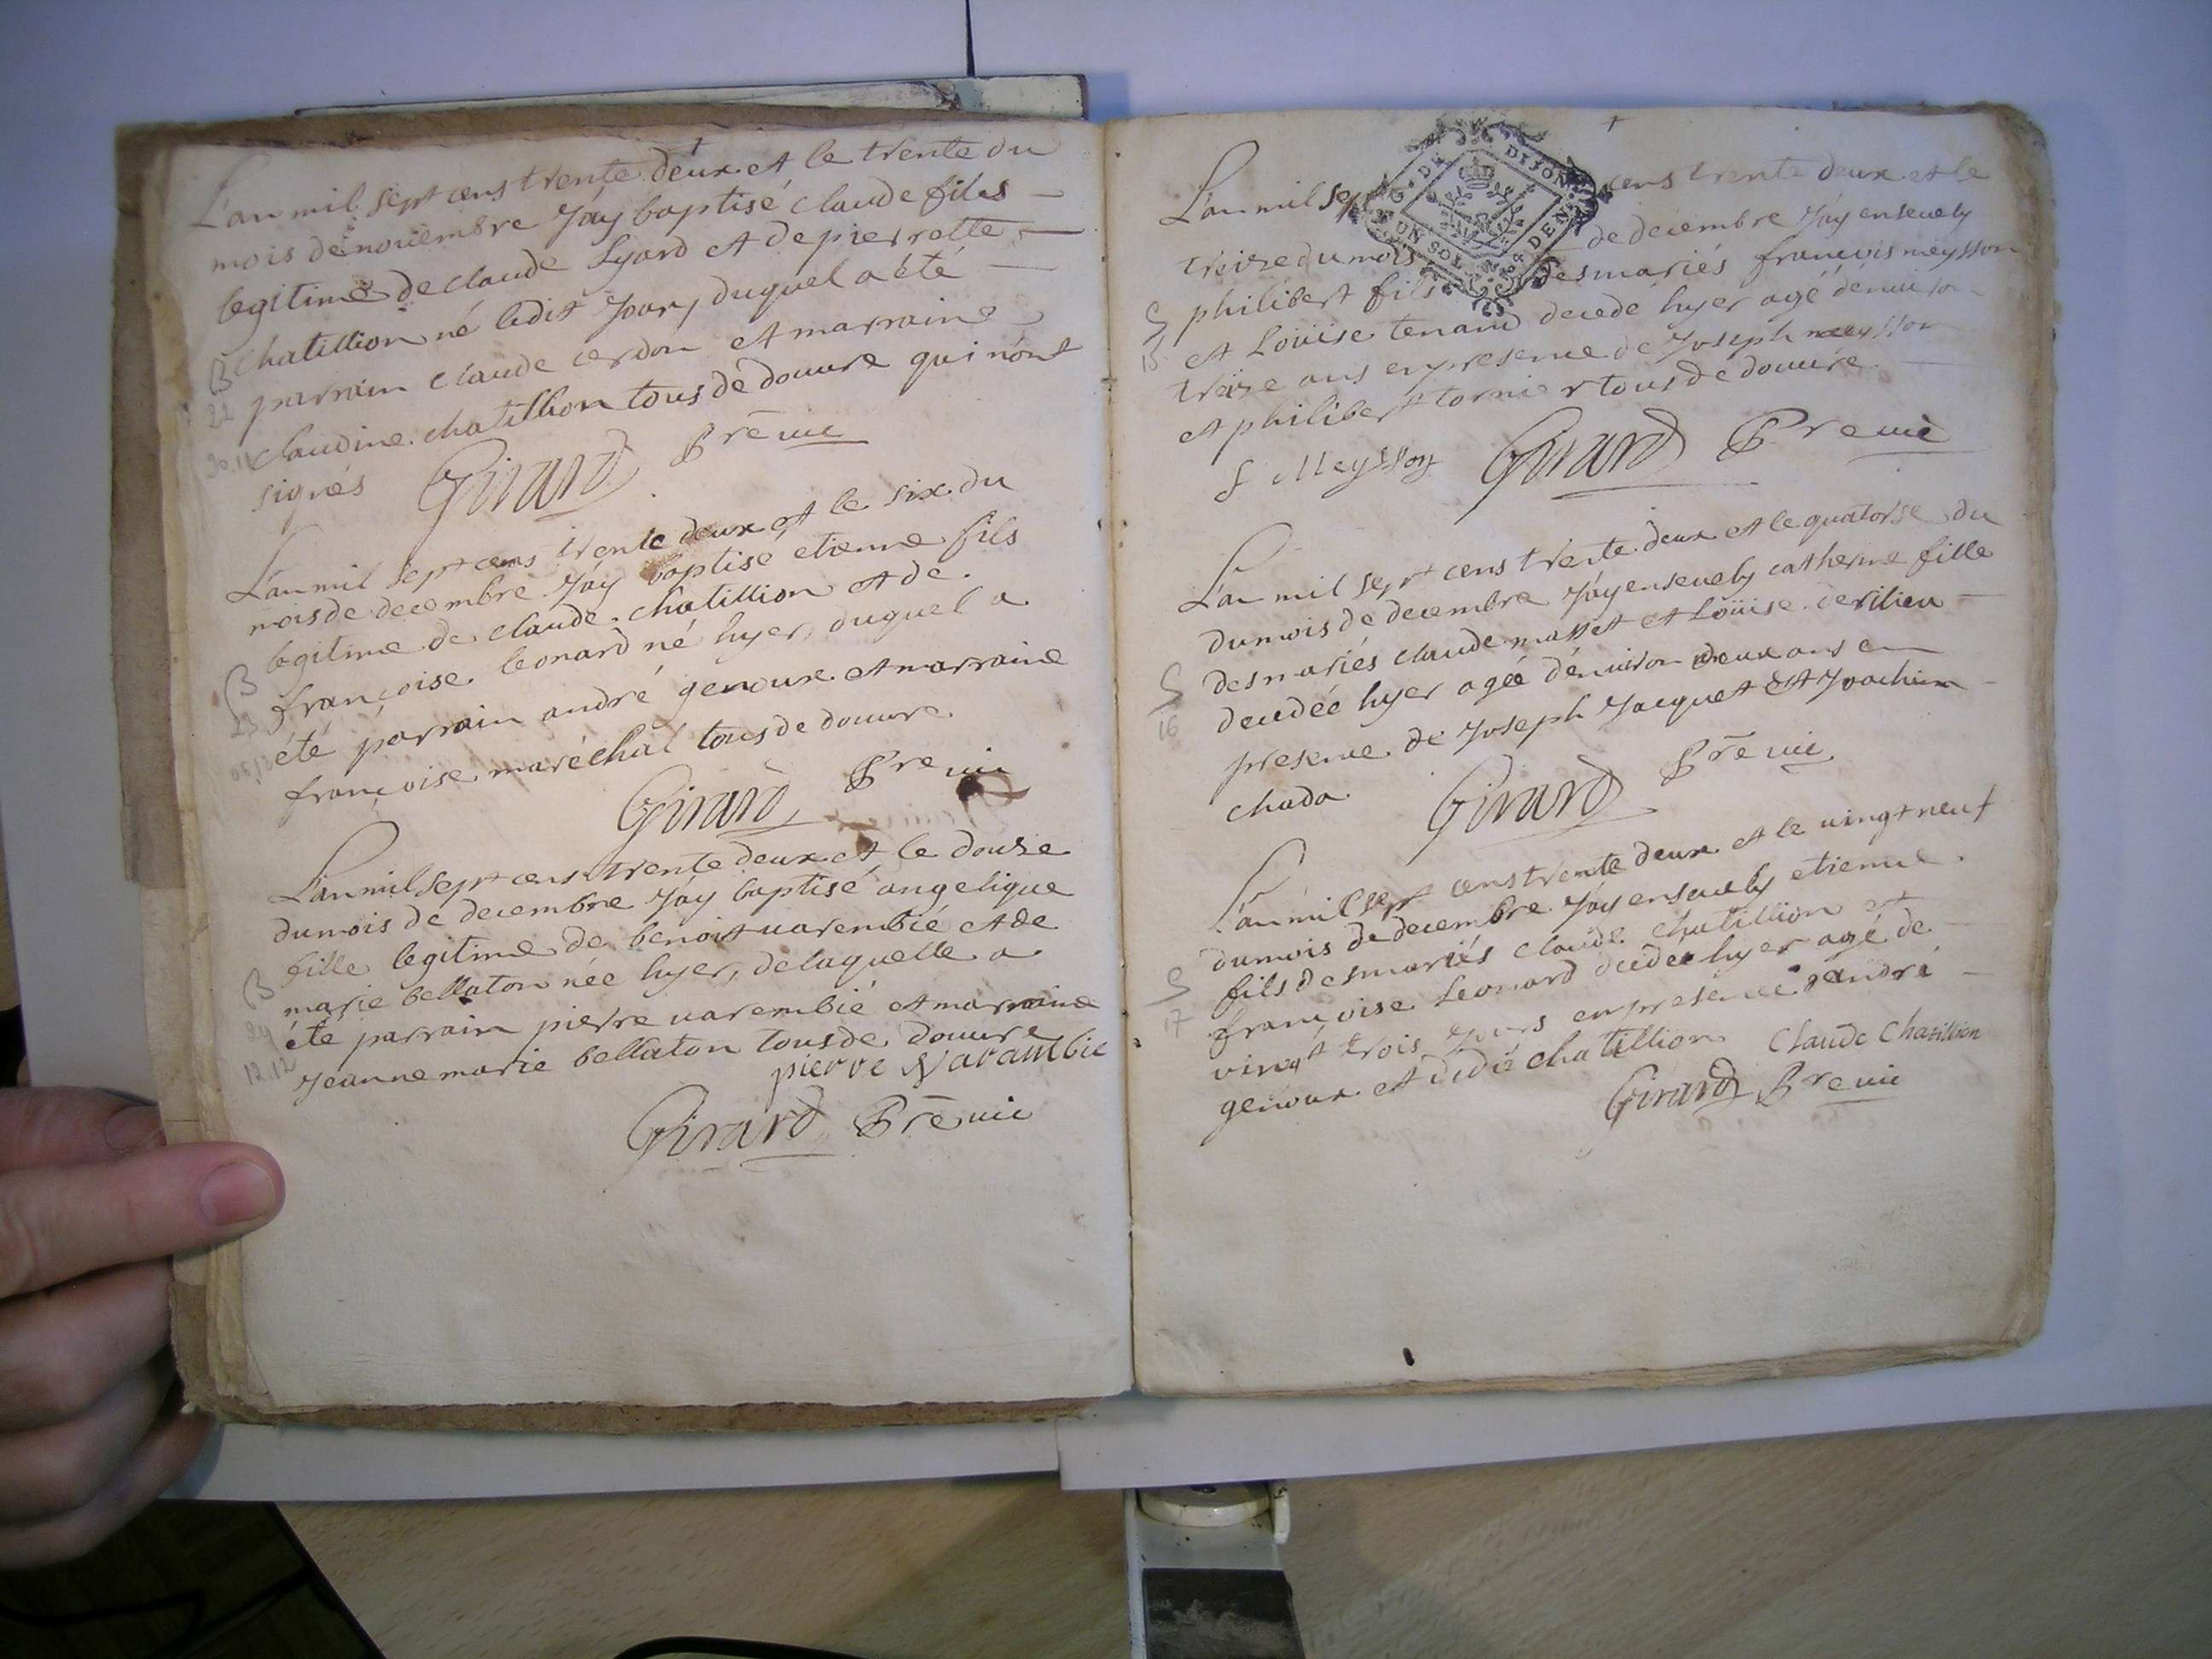 L'an mil sept cens trente deux et le trente du
mois de nouembre J'ay baptisé claude fils
legitime de claude Lyard et de pierrette
chatillion né ledit Jour, duquel a été
parrain claude cerdon et marraine
claudine chatillion tous de douure qui n'ont
signés Girard Prē uic
L'an mil sept cens trente deux et le six du
mois de decembre J'ay baptisé etienne fils
legitime de claude chatillion et de
françoise leonard né hyer, duquel a
été parrain andré genoux et marraine
françoise maréchal tous de douure
Girard Pre uic
L'an mil sept cens trente deux et le douse
du mois de decembre J'ay baptisé angelique
fille legitime de benoit uarembié et de
marie bellaton née hyer, de laquelle a
été parrain pierre uarembié et marraine
Jeanne marie bellaton tous de douure
pierre Varambie
Girard Prē uic
B
22
30.11
B
23
B
24
12.12
G. DE DIJON
UN SOL 4 DEN
L'an mil sept cens trente deux et le
treize du mois de decembre J'ay enseuely
philibert fils des mariés francois meysson
et Loüise tenand decedé hyer agé d'enuiron
treize ans en presence de Joseph meysson
et philibert tornier tous de douure
f Meysson Girard Pre uic
L'an mil sept cens trente deux et le quatorse du
du mois de decembre J'ay enseuely catherine fille
des mariés claude masset et Loüise derilieu
decedée hyer agée d'enuiron deux ans en
presence de Joseph Jacquet et Joachim
chada Girard Prē uic
L'an mil sept cens trente deux et le uingt neuf
du mois de decembre J'ay enseuely etienne
fils des mariés claude chatillion et
françoise Leonard decedé hyer agé de
vingt trois jours en presence d'andré
genoux et didié chatillion Claude Chatillion
Girard Pre uic
S
15
S
16
S
17